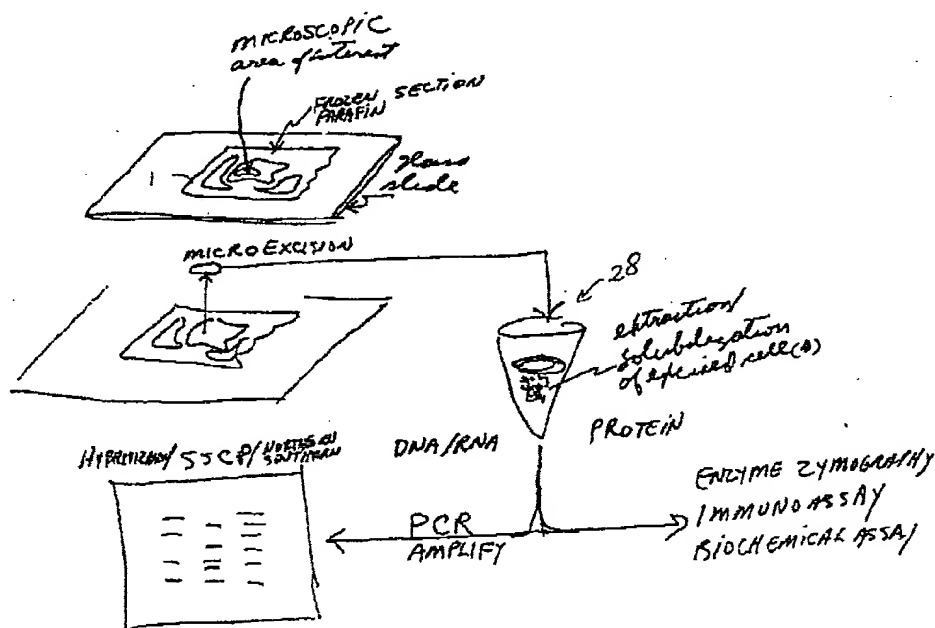 MICROSCOPIC
area of interest
FROZEN SECTION
PARAFIN
glass
slide
1
MICROEXCISION
28
extraction/
solubilization
of excised cell(s)
DNA/RNA
PROTEIN
SSCP/NORTHERN
SOUTHERN
PCR
AMPLIFY
ENZYME ZYMOGRAPHY
IMMUNOASSAY
BIOCHEMICAL ASSAY